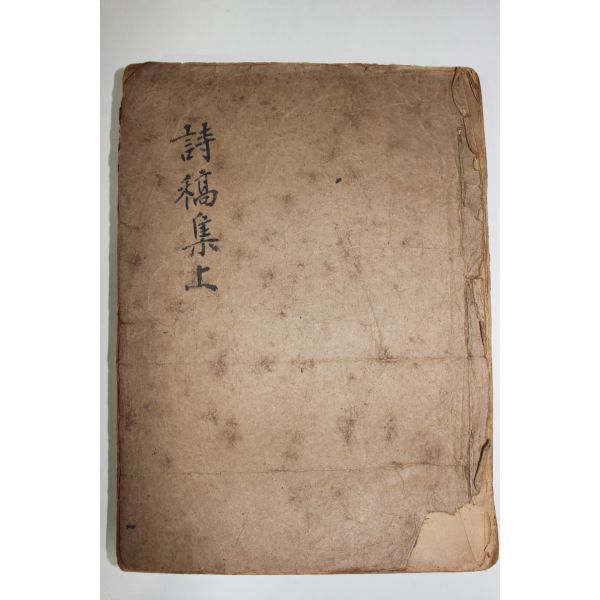 詩稿集上